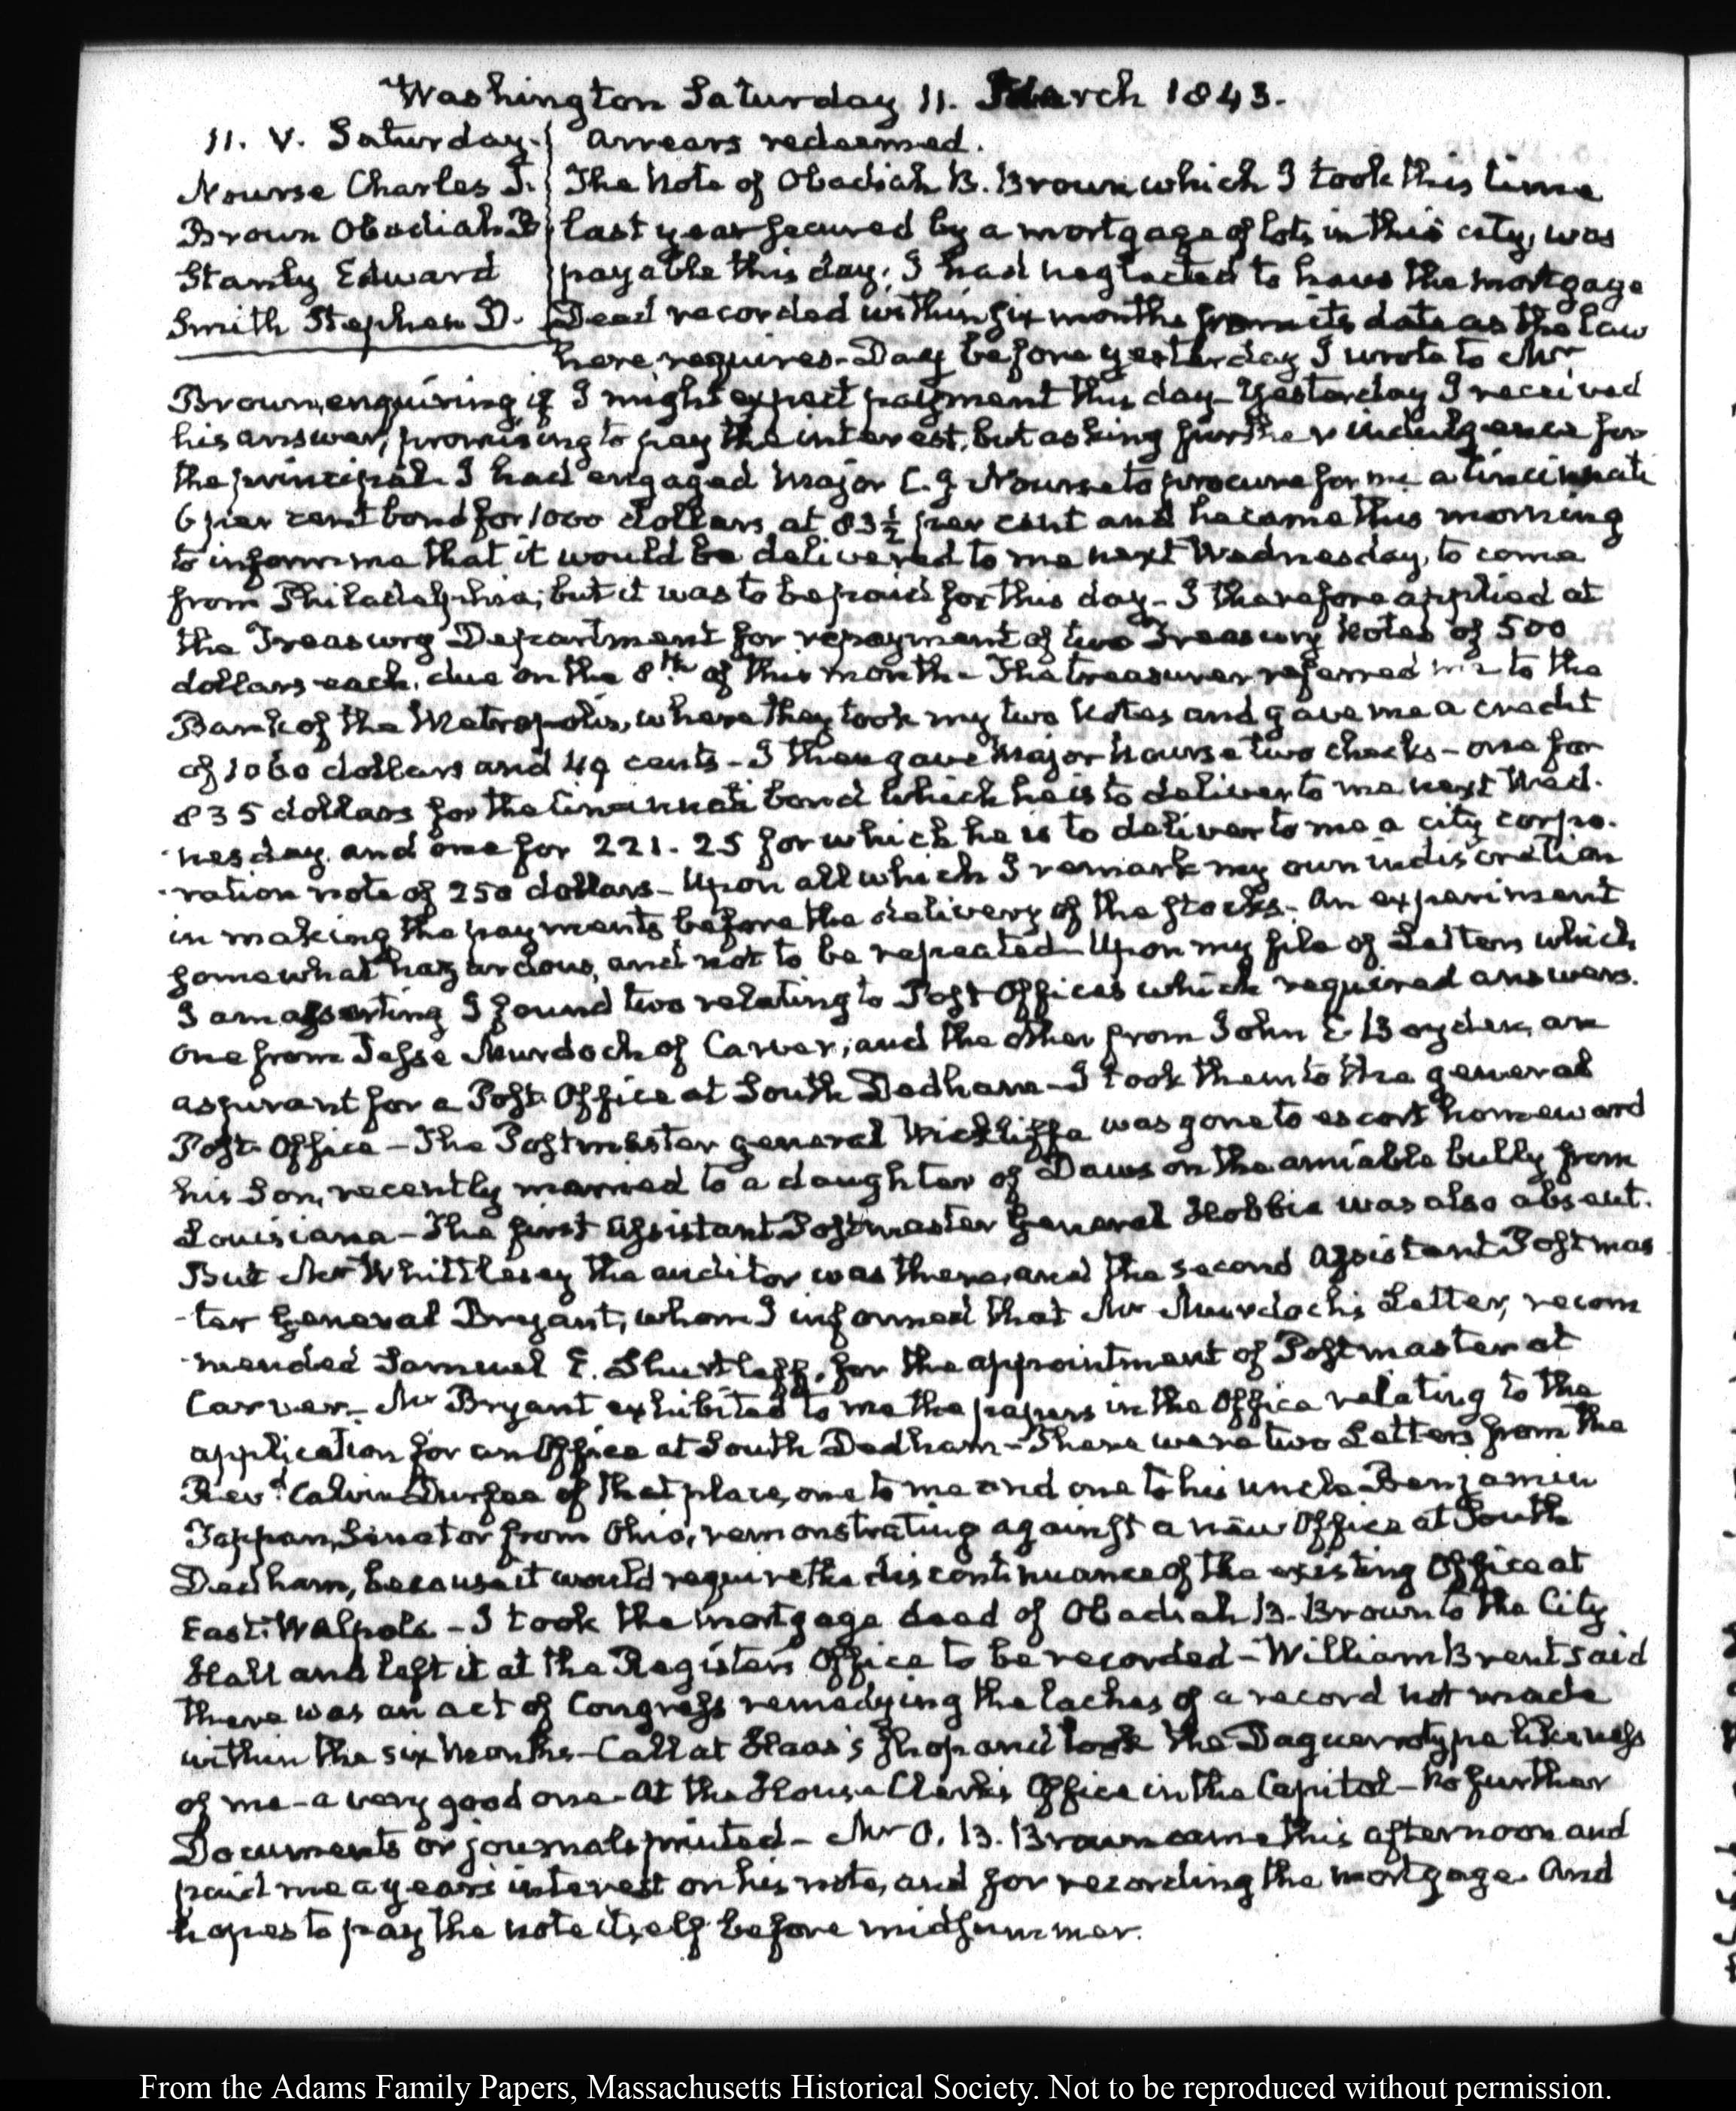 Washington Saturday 11. March 1843.
11. V. Saturday. Arrears redeemed.
Nourse Charles J. The Note of Obadiah B. Brown, which I took this time
Brown Obadiah B last year secured by a mortgage of lots in this city, was
Stanly Edward payable this day; I had neglected to have the mortgage
Smith Stephen D. Deed recorded within six months from its date as the law
here requires. Day before yesterday I wrote to Mr
Brown, enquiring if I might expect payment this day - Yesterday I received
his answer, promising to pay the interest, but asking further indulgence for
the principal. I had engaged Major C. J. Nourse to procure for me a Cincinnati
6 per cent bond for 1000 dollars, at 83½ per cent and he came this morning
to inform me that it would be delivered to me next Wednesday, to come
from Philadelphia; but it was to be paid for this day - I therefore applied at
the Treasury Department for repayment of two Treasury Notes of 500
dollars each, due on the 8th of this month - The treasurer referred me to the
Bank of the Metropolis, where they took my two Notes and gave me a credit
of 1060 dollars and 49 cents - I then gave Major Nourse two checks - one for
835 dollars for the Cincinnati bond which he is to deliver to me next Wed-
nesday, and one for 221.25 for which he is to deliver to me a city corpo-
-ration note of 250 dollars - Upon all which I remark my own indiscretion
in making the payments before the delivery of the stocks - An experiment
somewhat hazardous, and not to be repeated - Upon my file of Letters which
I am assorting I found two relating to Post Offices which required answers.
One from Jesse Murdock of Carver, and the other from John E Boyden, an
aspirant for a Post-Office at South Dedham - I took them to the general
Post-Office - The Postmaster general Wickliffe was gone to escort homeward
his Son, recently married to a daughter of Dawson the amiable bully from
Louisiana - The first Assistant Postmaster General Hobbie was also absent.
But Mr Whittlesey the auditor was there, and the second Assistant Postmas
-ter General Bryant, whom I informed that Mr Murdock's Letter, recom
-mended Samuel E. Shurtleff, for the appointment of Postmaster at
Carver - Mr Bryant exhibited to me the papers in the Office relating to the
application for an Office at South Dedham - There were two Letters from the
Revd Calvin Durfee of that place, one to me and one to his uncle Benjamin
Tappan, Senator from Ohio, remonstrating against a new Office at South
Dedham, because it would require the discontinuance of the existing Office at
East-Walpole - I took the mortgage deed of Obadiah B. Brown to the City
Hall and left it at the Register's Office to be recorded - William Brent said
there was an act of Congress remedying the laches of a record not made
within the six months - Call at Haas's shop and took the Daguerrotype likeness
of me - a very good one - At the House Clerk's Office in the Capitol - No further
Documents or journals printed - Mr O. B. Brown came this afternoon and
paid me a year's interest on his note, and for recording the mortgage. And
hopes to pay the note itself before midsummer.
From the Adams Family Papers, Massachusetts Historical Society. Not to be reproduced without permission.